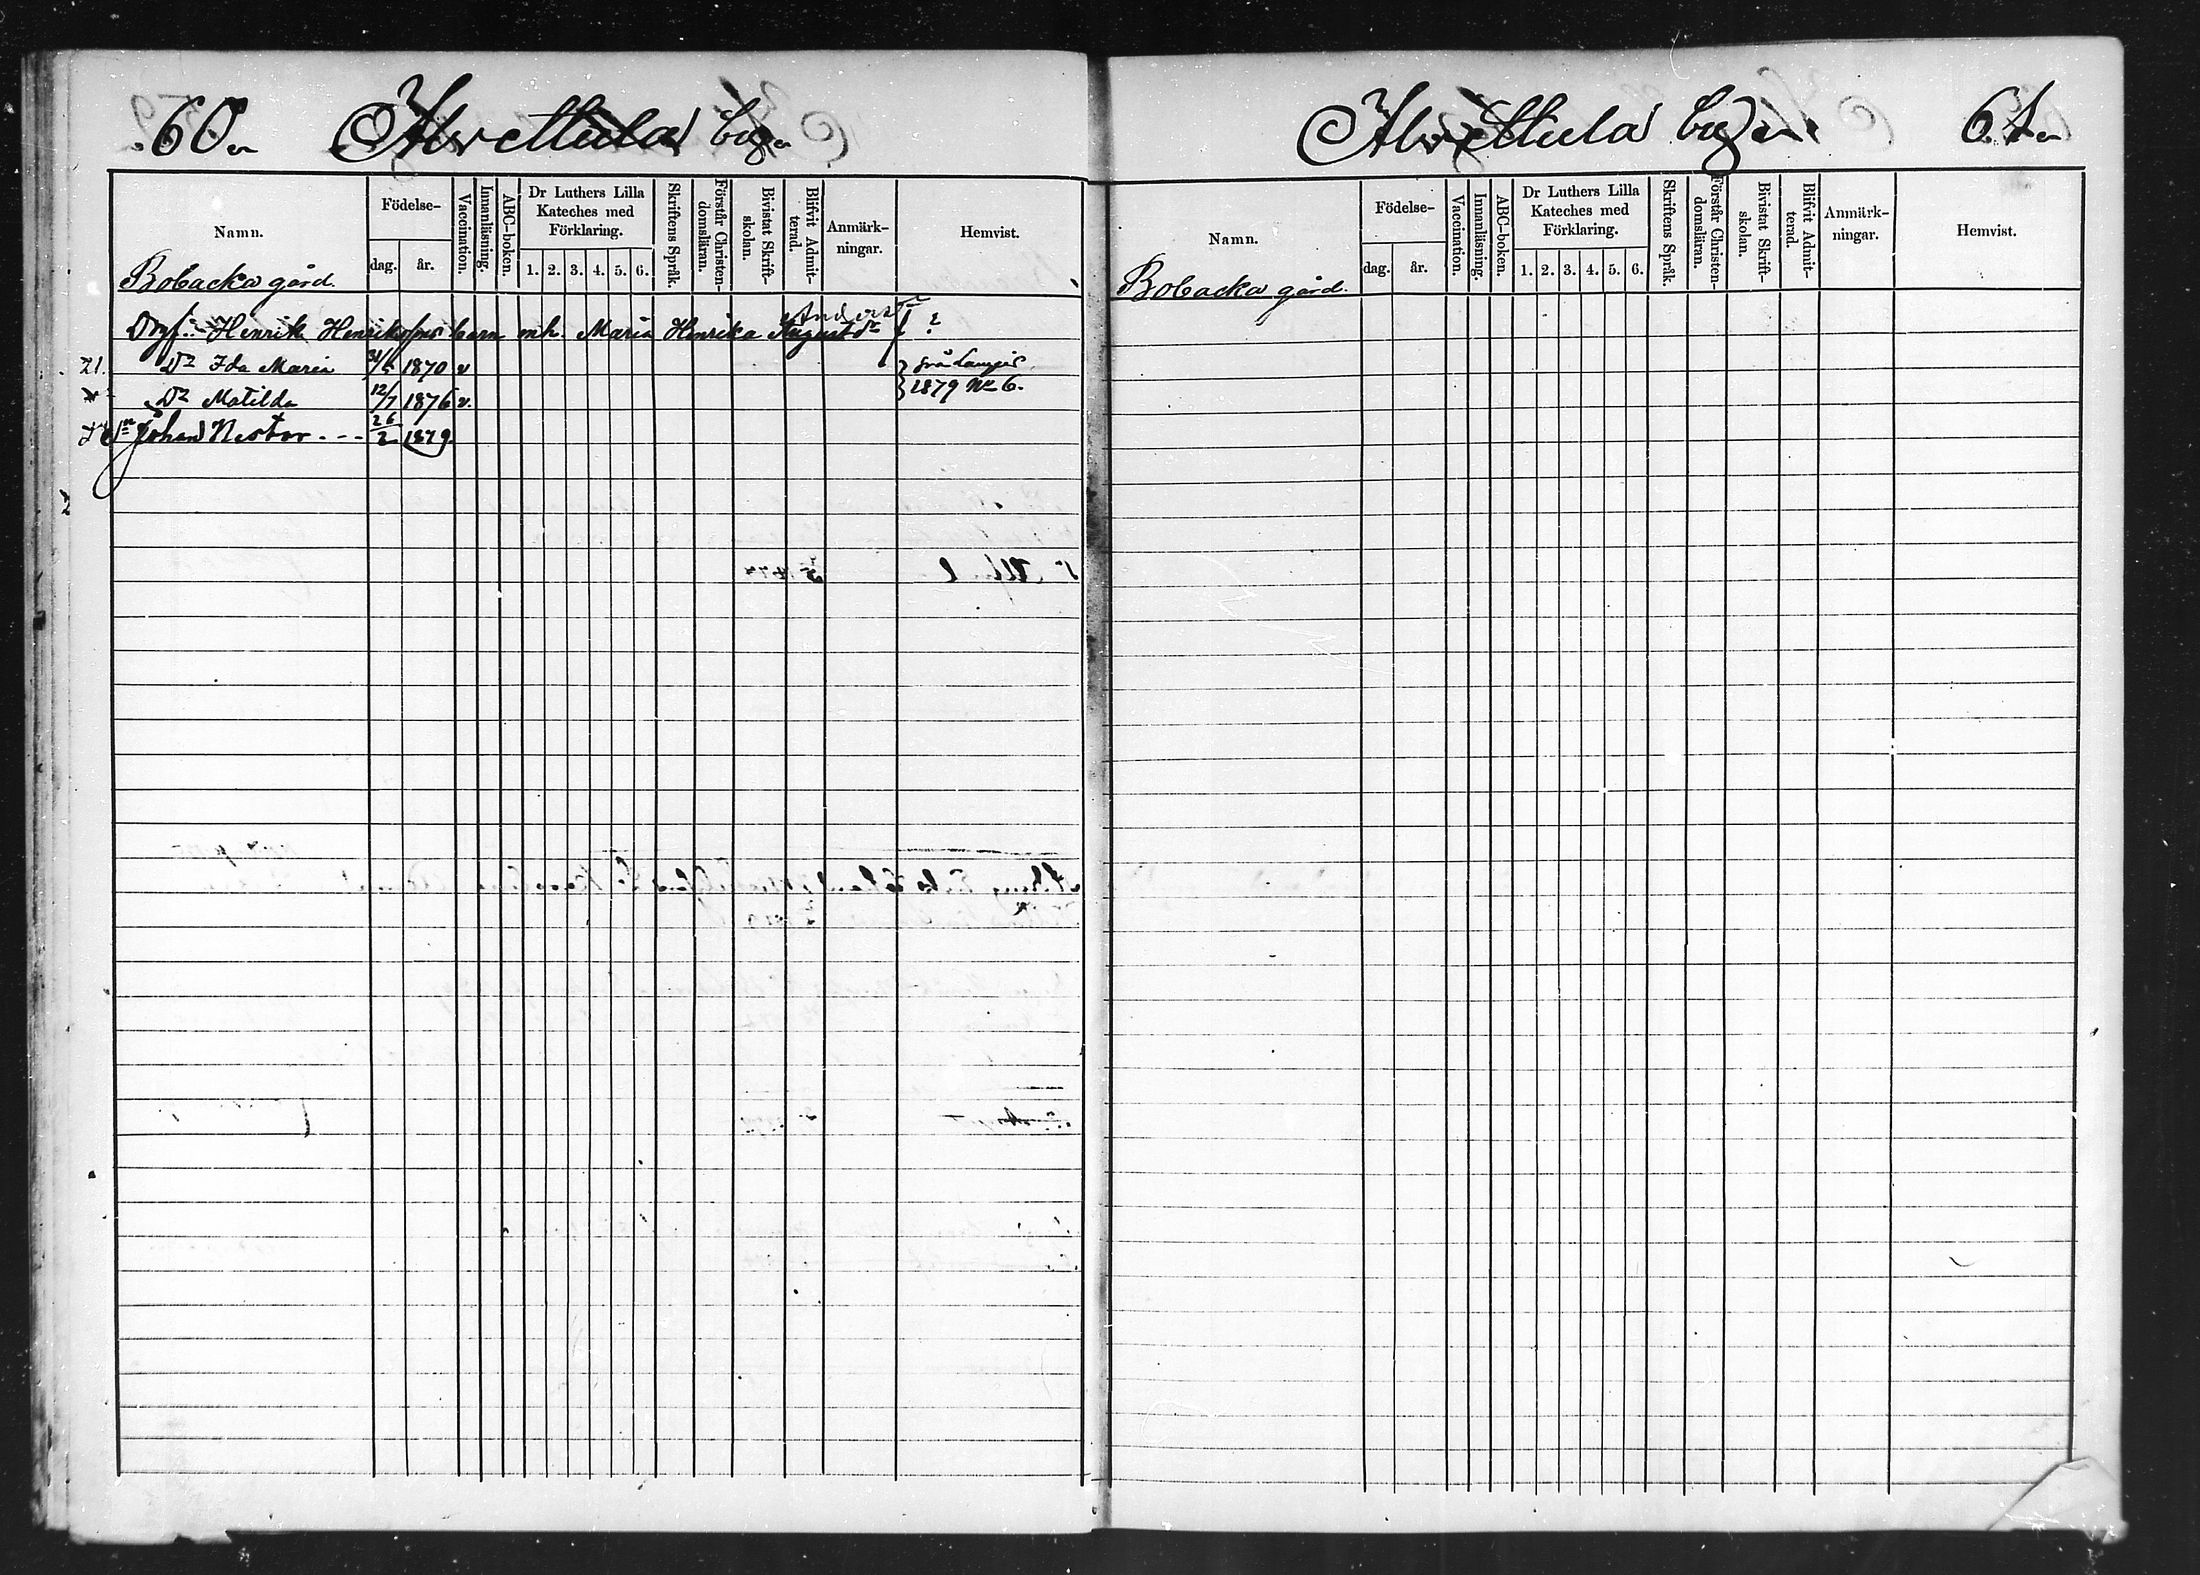 60.
Alrettula by.
Namn.
Födelse-
dag.
år.
Vaccination.
Innanläsning.
ABC-boken.
Dr Luthers Lilla
Kateches med
Förklaring.
1. 2. 3. 4. 5. 6.
Skriftens Språk.
Förstår Christen-
domsläran.
Bivistat Skrift-
skolan.
Blifvit Admit-
terad.
Anmärk-
ningar.
Hemvist.
Bobacka gård.
Anders
Henrik Henrikssons barn mh. Maria Henrika Augustdr ?
21. Dr Ida Maria 31/5 1870 v
Dr Matilda 12/7 1876 v. 1879 No 6.
Sn Johan Nestor 26/2 1879
Alrettula by 61
Namn.
Födelse-
dag.
år.
Vaccination.
Innanläsning.
ABC-boken.
Dr Luthers Lilla
Kateches med
Förklaring.
1. 2. 3. 4. 5. 6.
Skriftens Språk.
Förstår Christen-
domsläran.
Bivistat Skrift-
skolan.
Blifvit Admit-
terad.
Anmärk-
ningar.
Hemvist.
Bobacka gård.